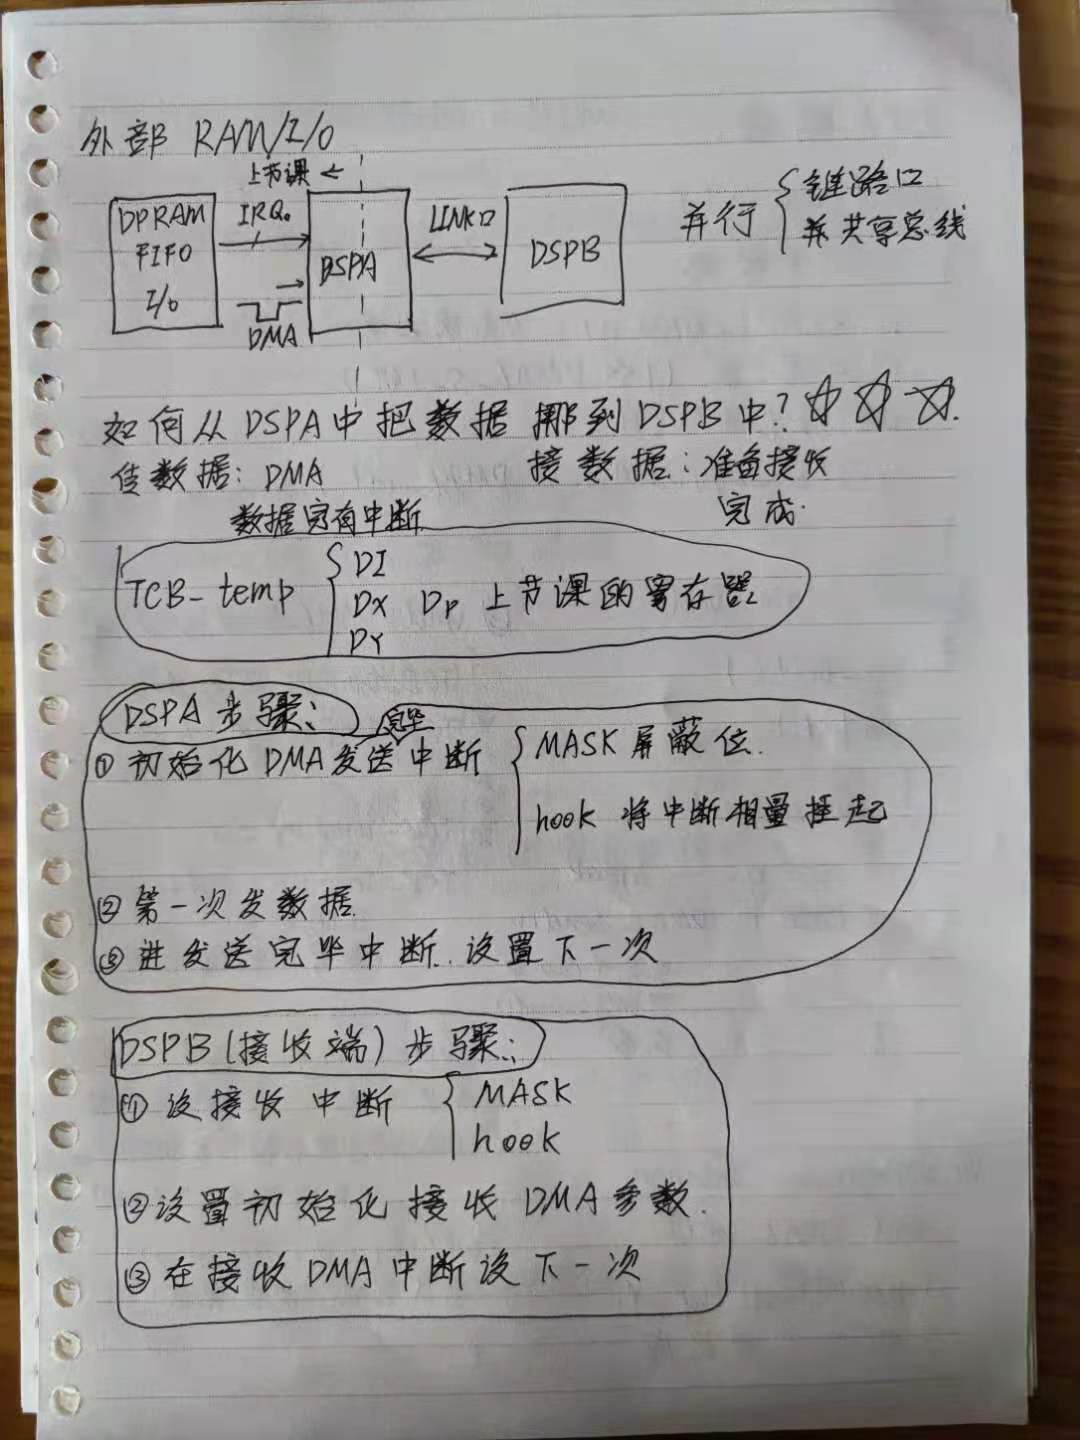 外部 RAM/I/O
上节课 ←
DPRAM
FIFO
I/o
IRQ0
DMA
DSPA
LINK口
DSPB
并行 { 链路口
共享总线
如何从DSPA中把数据 挪到DSPB中? ☆☆☆.
传数据: DMA 接数据: 准备接收
数据完有中断 完成.
TCB_temp { DI
DX DP 上节课的寄存器
DY
DSPA步骤:
完毕
① 初始化 DMA发送中断 { MASK 屏蔽位.
hook 将中断相量挂起
② 第一次发数据
③ 进发送完毕中断. 设置下一次
DSPB(接收端) 步骤:
① 设接收中断 { MASK
hook
② 设置初始化 接收 DMA参数.
③ 在接收DMA中断设下一次